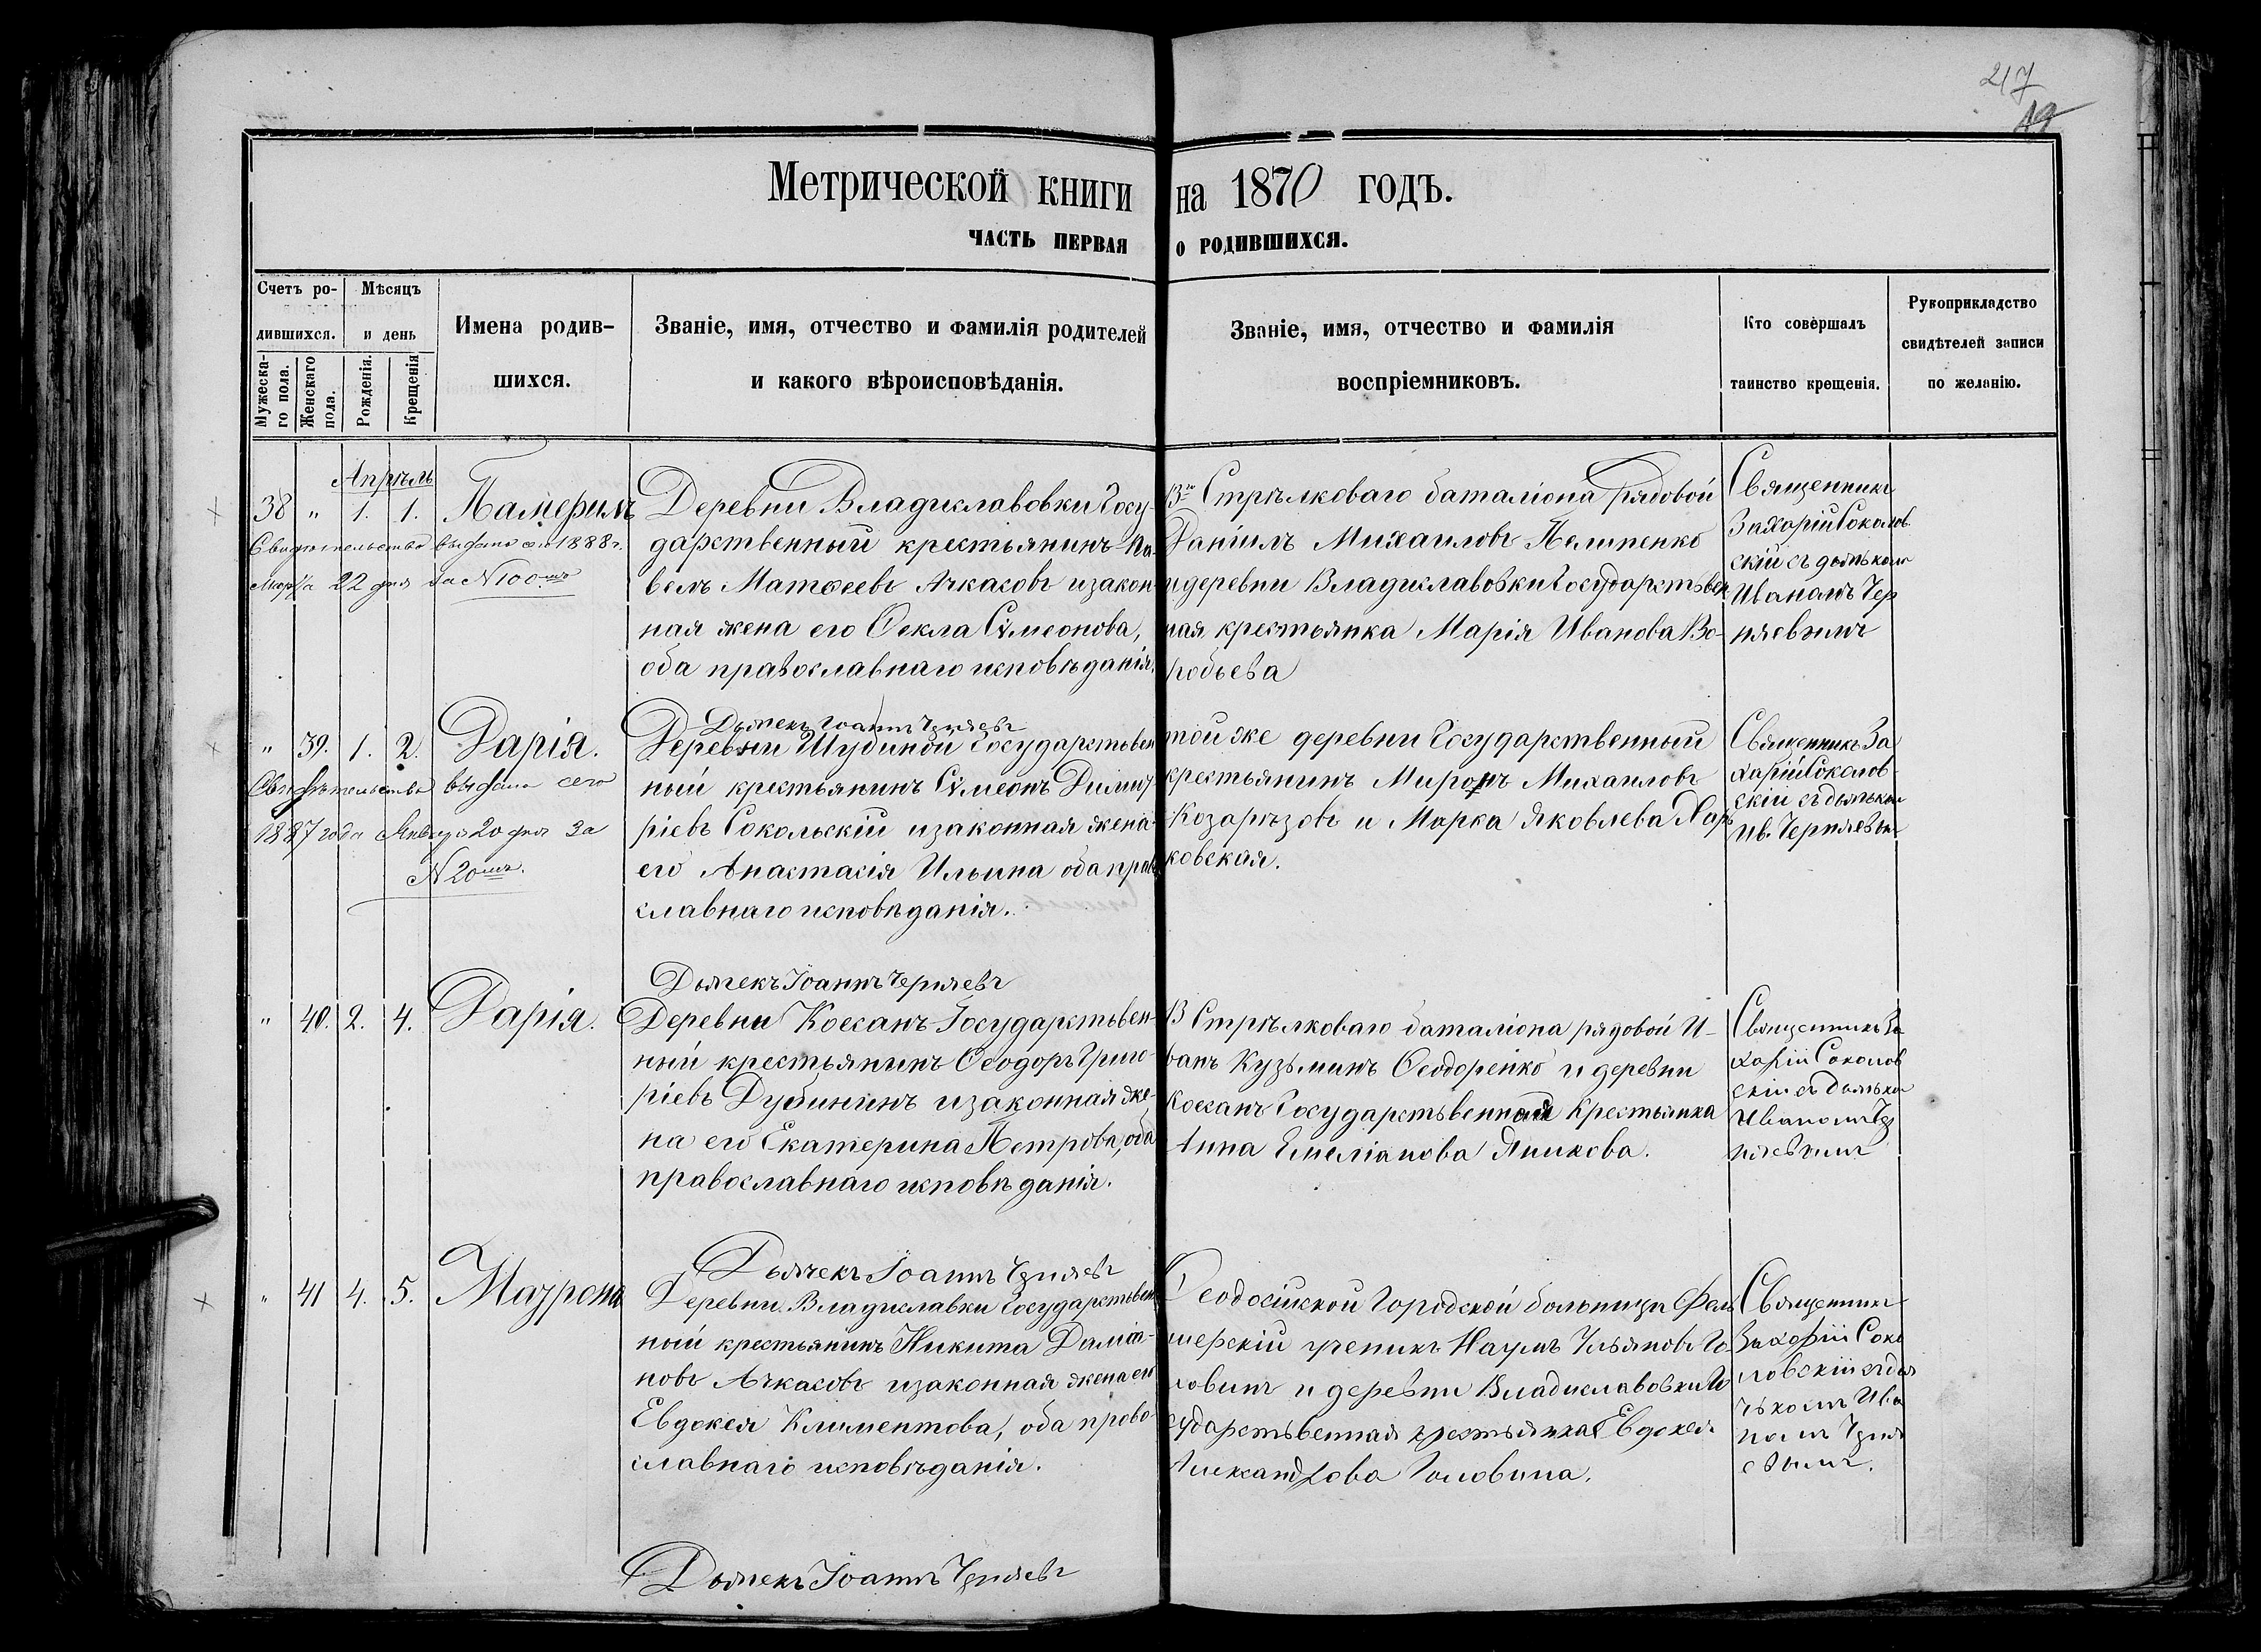 217
19
Метрической книги на 1870 годъ.
ЧАСТЬ ПЕРВАЯ О РОДИВШИХСЯ.
Счетъ ро-
дившихся.
Мужеска-
го пола.
Женскаго
пола.
Мѣсяцъ
и день
Рожденія.
Крещенія
Имена родив-
шихся.
Званіе, имя, отчество и фамилія родителей
и какого вѣроисповѣданія.
Званіе, имя, отчество и фамилія
воспріемниковъ.
Кто совершалъ
таинство крещенія.
Рукоприкладство
свидѣтелей записи
по желанію.
Апрѣль
38 " 1. 1.
Свидѣтельство выдано 1888 г.
Марта 22 дня за N 100
Деревни Владиславовки Госу-
дарственный крестьянинъ Па-
велъ Матѳеевъ Ачкасовъ и закон-
ная жена его Ѳекла Сѵмеонова,
оба православнаго исповѣданія.
Стрѣлковаго баталіона рядовой
Даніилъ Михаиловъ Пелипенко
и деревни Владиславовки Государствен
ная крестьянка Марія Иванова Во-
робьева
Священникъ
Захарій Соколов
скій съ дьячкомъ
Иваномъ Чер
няевымъ
Дьячекъ Іоаннъ Черняевъ
" 39. 1. 2. Дарія.
Свидѣтельство выдано сего
1887 года Января 20 дня за
N 20
Деревни Шубиной Государствен
ный крестьянинъ Сѵмеонъ Димит
ріевъ Сокольскій и законная жена
его Анастасія Ильина оба право
славнаго исповѣданія.
той же деревни Государственный
крестьянинъ Миронъ Михаиловъ
Козарѣзовъ и Марѳа Яковлева Хар
ковская.
Священникъ За
харій Соколов
скій съ дьячком
Ив. Черняевым
Дьячекъ Іоаннъ Черняевъ
" 40. 2. 4. Дарія.
Деревни Коссанъ Государствен-
ный крестьянинъ Ѳеодоръ Григо-
ріевъ Дубининъ и законная же-
на его Екатерина Петрова, оба
православнаго исповѣданія.
Стрѣлковаго баталіона рядовой И-
ванъ Кузьминъ Ѳеодоренко и деревни
Коссанъ Государственная Крестьянка
Анна Емеліанова Яникова.
Священникъ За
харій Соколов
скій съ дьячком
Иваномъ Чер
няевымъ
Дьячекъ Іоаннъ Черняевъ
" 41 4. 5. Маѵрона
Деревни Владиславки Государствен
ный крестьянинъ Никита Даміа-
новъ Ачкасовъ и законная жена его
Евдокея Климентова, оба право-
славнаго исповѣданія.
Ѳеодосійской Городской больницы Фельд
шерскій ученикъ Наумъ Ульяновъ Го
ловинъ и деревни Владиславовки Го
сударственная крестьянка Евдокея
Александрова Головина.
Священникъ
Захарій Соко
ловскій съ дья
чкомъ Ива
номъ Черня
евымъ.
Дьячекъ Іоаннъ Черняевъ